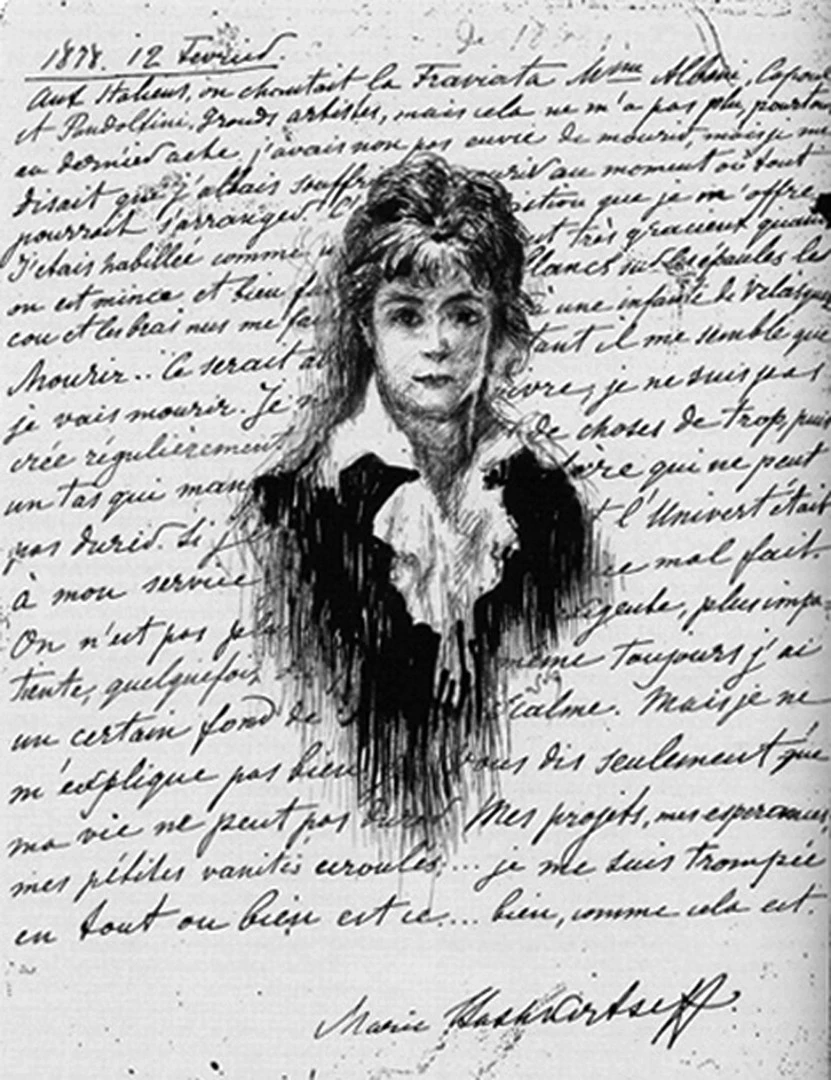 1878. 12 Fevrier.
Aux Italiens, on chantait la Traviata Mme Albani, Capoul
et Pandolfini. Grands artistes, mais cela ne m'a pas plu, pourtant
au dernier acte j'avais non pas envie de mourir, mais je me
disait que j'allais souffrir au moment où tout
pourrait s'arranger. que je m'offre
J'étais habillée comme très gracieux quand
on est mince et bien blanc sur les épaules le
cou et les bras nus me à une infante de Velasquez
Mourir.. Ce serait tant il me semble que
je vais mourir. Je je ne suis pas
crée régulièrement de choses de trop, puis
un tas qui man qui ne peut
pas durer. Si je l'Univert était
à mon service mal fait
On n'est pas plus
tente, quelquefois même toujours j'ai
un certain fond de calme. Mais je ne
m'explique pas bien vous dis seulement que
ma vie ne peut pas durer Mes projets, mes esperances,
mes pétites vanités ecroulés.... je me suis trompée
en tout ou bien est ce.... bien, comme cela est.
Marie Bashkirtseff